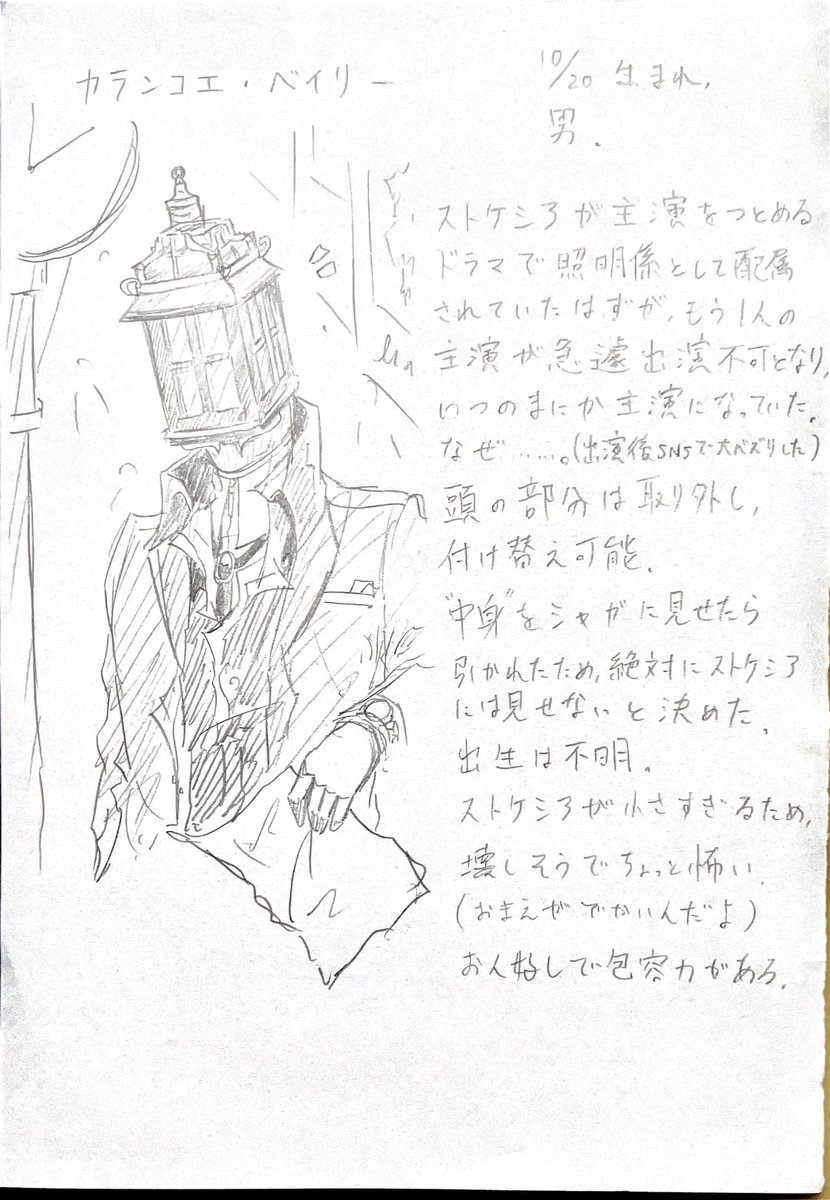 カランコエ・ベイリー
10/20 生まれ,
男.
ストケシアが主演をつとめる
ドラマで照明係として配属
されていたはずが,もう1人の
主演が急遽出演不可となり,
いつのまにか主演になっていた.
なぜ……。(出演後SNSで大バズりした)
頭の部分は取り外し,
付け替え可能.
"中身"をシャガに見せたら
引かれたため,絶対にストケシア
には見せないと決めた.
出生は不明.
ストケシアが小さすぎるため,
壊しそうでちょっと怖い.
(おまえがでかいんだよ)
お人好しで包容力がある.